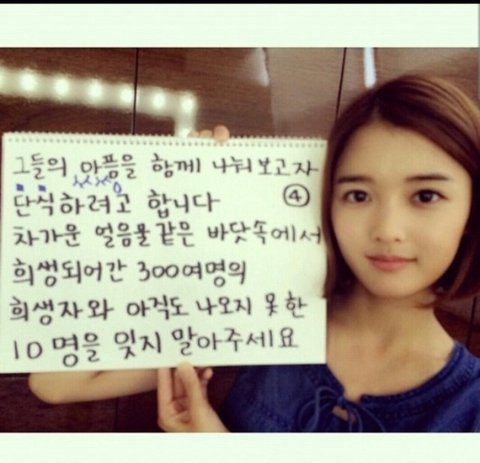 그들의 아픔을 함께 나눠보고자
단식하려고 합니다 ④
차가운 얼음물 같은 바닷속에서
희생되어간 300여명의
희생자와 아직도 나오지 못한
10명을 잊지 말아주세요